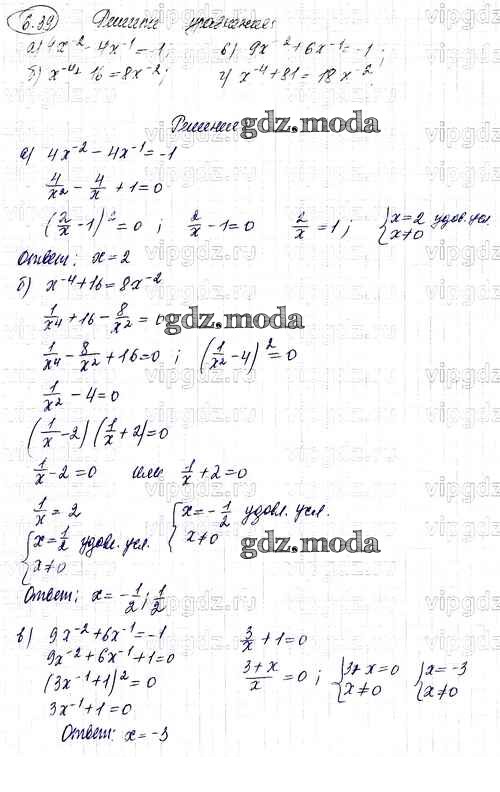 6.39 Решить уравнение:
а) 4x⁻² - 4x⁻¹ = -1; в) 9x⁻² + 6x⁻¹ = -1;
б) x⁻⁴ + 16 = 8x⁻²; г) x⁻⁴ + 81 = 18x⁻².
Решение
gdz.moda
а) 4x⁻² - 4x⁻¹ = -1
4/x² - 4/x + 1 = 0
(2/x - 1)² = 0 ; 2/x - 1 = 0 2/x = 1 ; { x = 2 удов. усл. x ≠ 0
Ответ: x = 2
б) x⁻⁴ + 16 = 8x⁻²
1/x⁴ + 16 - 8/x² = 0
gdz.moda
1/x⁴ - 8/x² + 16 = 0 ; (1/x² - 4)² = 0
1/x² - 4 = 0
(1/x - 2)(1/x + 2) = 0
1/x - 2 = 0 или 1/x + 2 = 0
1/x = 2 { x = -1/2 удовл. усл. x ≠ 0
{ x = 1/2 удовл. усл. x ≠ 0
gdz.moda
Ответ: x = -1/2 ; 1/2
в) 9x⁻² + 6x⁻¹ = -1 3/x + 1 = 0
9x⁻² + 6x⁻¹ + 1 = 0 (3 + x)/x = 0 ; { 3 + x = 0 x ≠ 0 { x = -3 x ≠ 0
(3x⁻¹ + 1)² = 0
3x⁻¹ + 1 = 0
Ответ: x = -3
vipgdz.ru